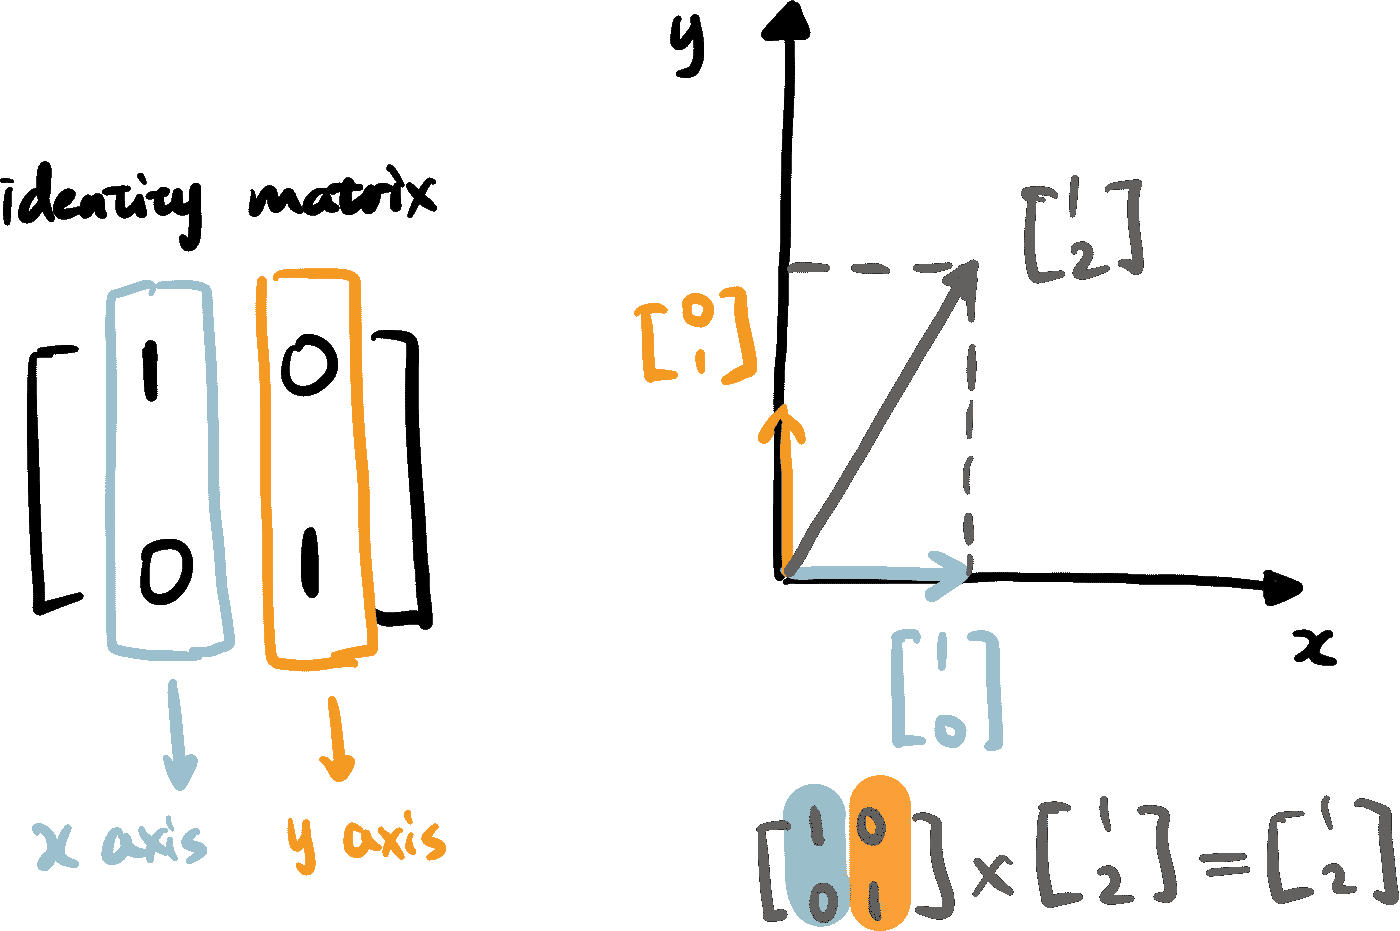 identity matrix
1 0
0 1
x axis
y axis
y
[1
2]
[0
1]
x
[1
0]
[1 0
0 1] × [1
2] = [1
2]